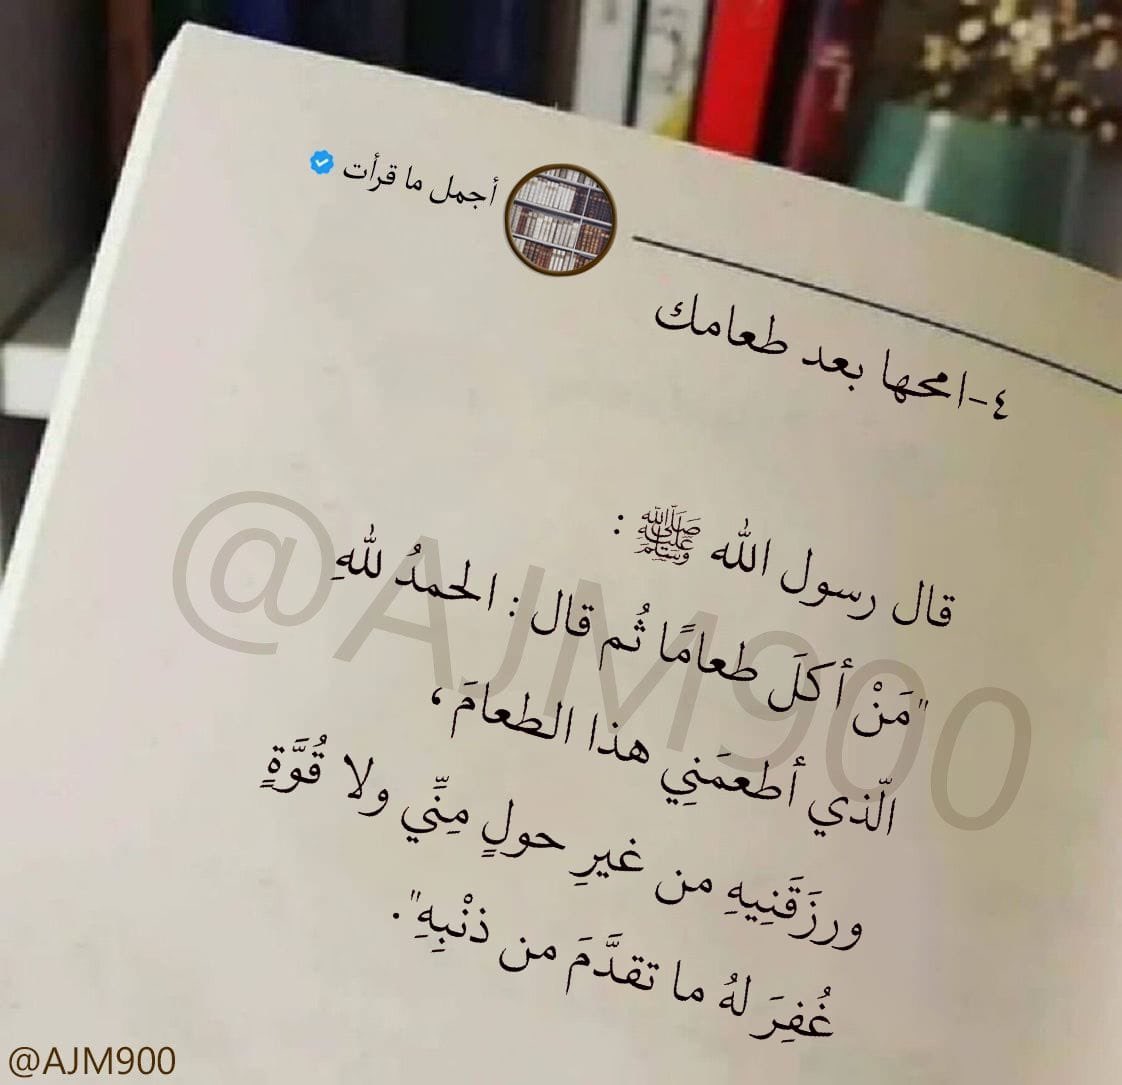 أجمل ما قرأت
٤-امحها بعد طعامك
قال رسول الله ﷺ :
"مَنْ أكَلَ طعامًا ثُم قال : الحمدُ للهِ
الّذي أطعمَنِي هذا الطعامَ ،
ورزَقَنِيهِ من غيرِ حولٍ مِنِّي ولا قُوَّةٍ
غُفِرَ لهُ ما تقدَّمَ من ذنْبِهِ".
@AJM900
@AJM900